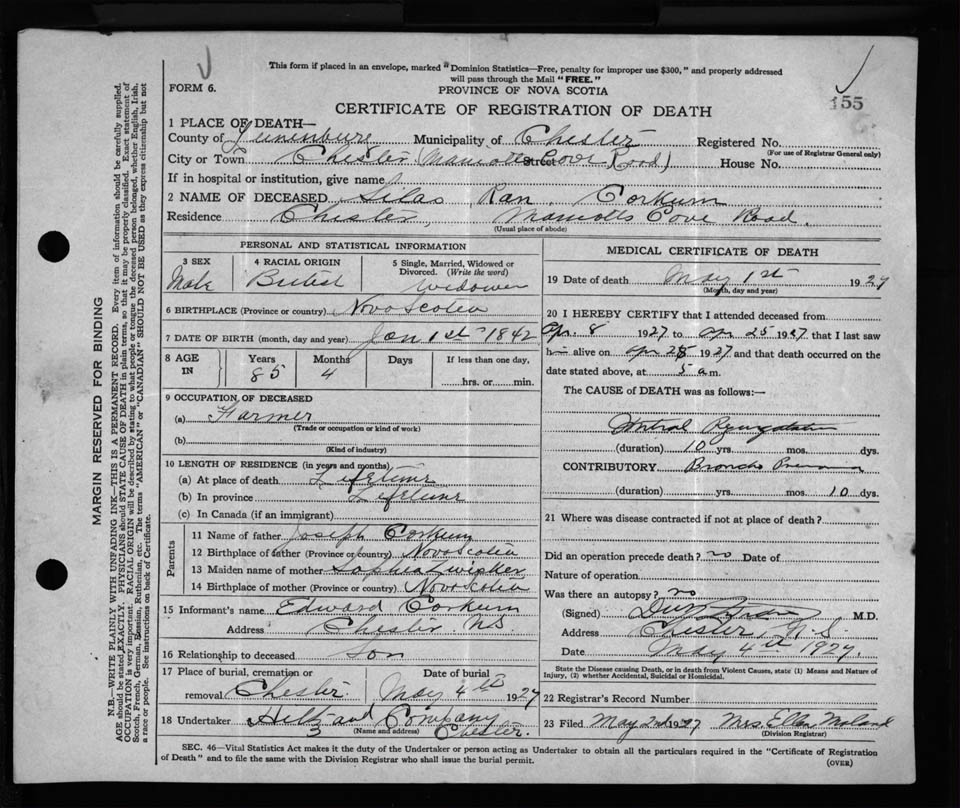 This form if placed in an envelope, marked "Dominion Statistics—Free, penalty for improper use $300," and properly addressed
will pass through the Mail "FREE."
FORM 6.
PROVINCE OF NOVA SCOTIA
155
CERTIFICATE OF REGISTRATION OF DEATH
1 PLACE OF DEATH—
County of Lunenburg Municipality of Chester Registered No.
(For use of Registrar General only)
City or Town Chester Street Cove Road) House No.
If in hospital or institution, give name
2 NAME OF DECEASED Silas Ran. Corkum
Residence Chester, Cove Road.
(Usual place of abode)
PERSONAL AND STATISTICAL INFORMATION
3 SEX 4 RACIAL ORIGIN 5 Single, Married, Widowed or
Divorced. (Write the word)
Male British Widower
6 BIRTHPLACE (Province or country) Nova Scotia
7 DATE OF BIRTH (month, day and year) Jan 1st 1842
8 AGE IN Years Months Days If less than one day,
85 4 hrs. or min.
9 OCCUPATION OF DECEASED
(a) Farmer
(Trade or occupation or kind of work)
(b)
(Kind of industry)
10 LENGTH OF RESIDENCE (in years and months)
(a) At place of death Lifetime
(b) In province Lifetime
(c) In Canada (if an immigrant)
Parents
11 Name of father Joseph Corkum
12 Birthplace of father (Province or country) Nova Scotia
13 Maiden name of mother Sophia Zwicker
14 Birthplace of mother (Province or country) Nova Scotia
15 Informant's name Edward Corkum
Address Chester N.S.
16 Relationship to deceased Son
17 Place of burial, cremation or Date of burial
removal Chester. May 4th 1927
18 Undertaker and Company
(Name and address) Chester.
MEDICAL CERTIFICATE OF DEATH
19 Date of death May 1st 1927
(Month, day and year)
20 I HEREBY CERTIFY that I attended deceased from
Apr. 8 1927 to apr 25 1927 that I last saw
him alive on apr 1927 and that death occurred on the
date stated above, at 5 a m.
The CAUSE of DEATH was as follows:—
Mitral Regurgitation
(duration) 10 yrs. mos. dys.
CONTRIBUTORY Broncho Pneumonia
(duration) yrs. mos. 10 dys.
21 Where was disease contracted if not at place of death?
Did an operation precede death? no Date of
Nature of operation
Was there an autopsy? no
(Signed) M.D.
Address Chester N.S.
Date May 4th 1927.
State the Disease causing Death, or in death from Violent Causes, state (1) Means and Nature of
Injury, (2) whether Accidental, Suicidal or Homicidal.
22 Registrar's Record Number
23 Filed May 2nd 1927 Mrs. Ella
(Division Registrar)
SEC. 46—Vital Statistics Act makes it the duty of the Undertaker or person acting as Undertaker to obtain all the particulars required in the "Certificate of Registration
of Death" and to file the same with the Division Registrar who shall issue the burial permit.
(OVER)
MARGIN RESERVED FOR BINDING
N.B.—WRITE PLAINLY WITH UNFADING INK—THIS IS A PERMANENT RECORD. Every item of information should be carefully supplied.
AGE should be stated EXACTLY. PHYSICIANS should STATE CAUSE OF DEATH in plain terms, so that it may be properly classified. Exact statement of
OCCUPATION is very important. RACIAL ORIGIN will be described by stating to what people or tongue the deceased person belonged, whether English, Irish,
Scotch, French, German, Russian, Ruthenian, etc. The terms "AMERICAN" or "CANADIAN" SHOULD NOT BE USED as they express citizenship but not
a race or people. See instructions on back of Certificate.